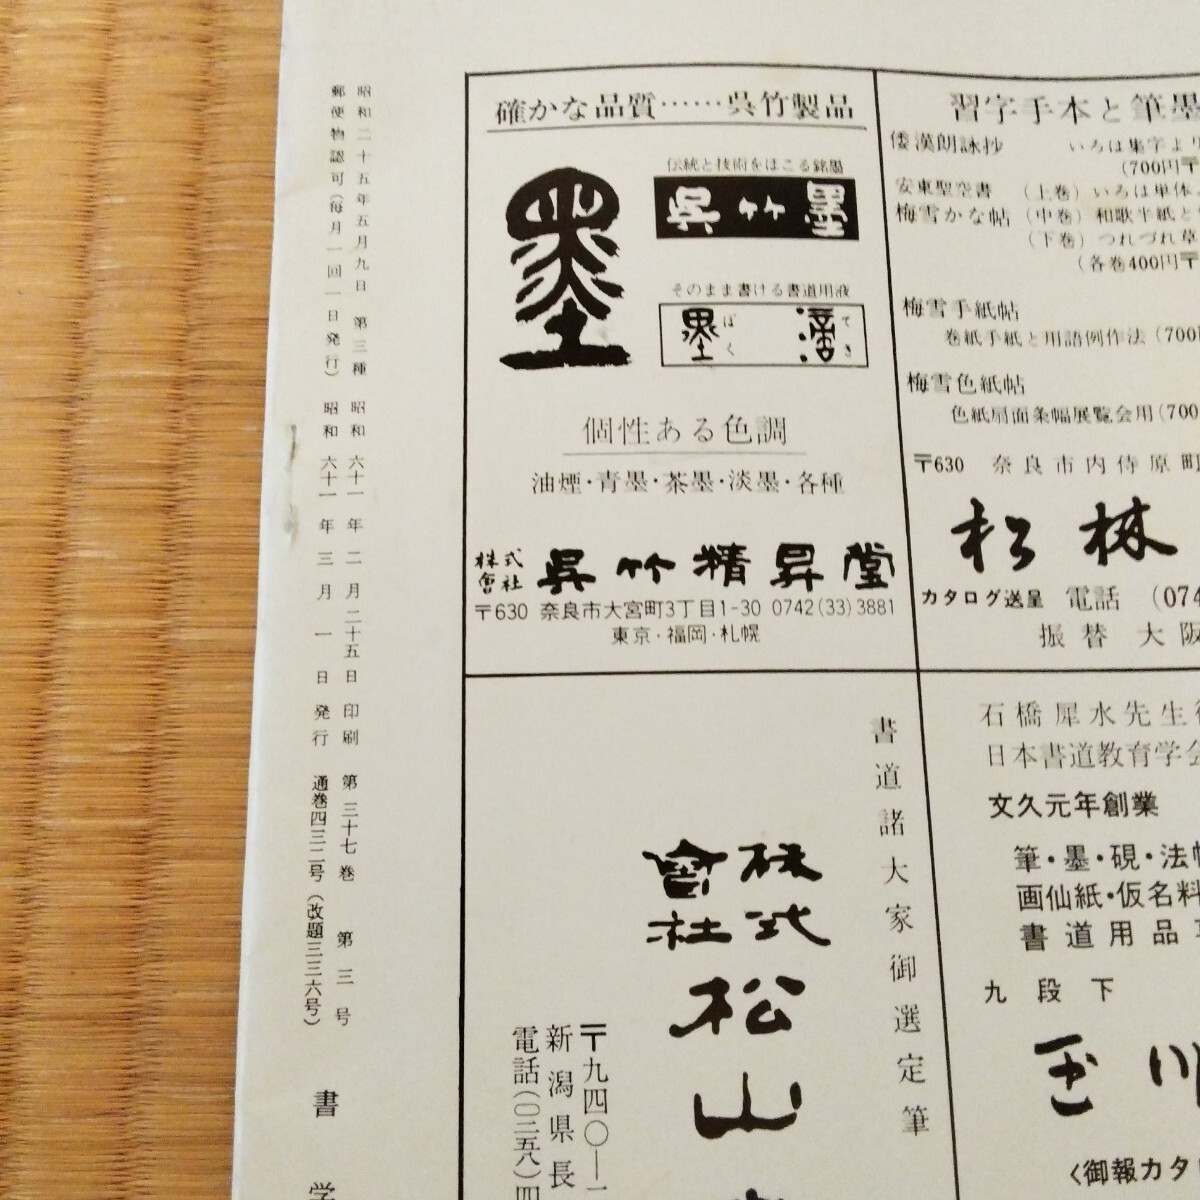 昭和二十五年五月九日 第三種 昭和 六十一 年 二月二十五日 印刷 第三十七巻 第三号
郵便物認可(毎月一回一日発行) 昭和 六十一 年 三月 一日 発行 通巻四三二号(改題三三六号)
書 学
確かな品質……呉竹製品
墨
伝統と技術をほこる銘墨
呉竹墨
そのまま書ける書道用液
墨滴
ぼく てき
個性ある色調
油煙・青墨・茶墨・淡墨・各種
株式會社 呉竹精昇堂
〒630 奈良市大宮町3丁目1-30 0742(33)3881
東京・福岡・札幌
習字手本と筆墨
倭漢朗詠抄 いろは集字より
(700円〒
安東聖空書 (上巻)いろは単体
梅雪かな帖 (中巻)和歌半紙と
(下巻)つれづれ草
(各巻400円〒
梅雪手紙帖
巻紙手紙と用語例作法(700
梅雪色紙帖
色紙扇面条幅展覧会用(700
〒630 奈良市内侍原町
松林
カタログ送呈 電話 (074
振替 大阪
書道諸大家御選定筆
株式會社
松山
〒九四〇―
新潟県長
電話(〇二五八)四
石橋犀水先生
日本書道教育学会
文久元年創業
筆・墨・硯・法帖
画仙紙・仮名料
書道用品
九段下
玉川
<御報カタ